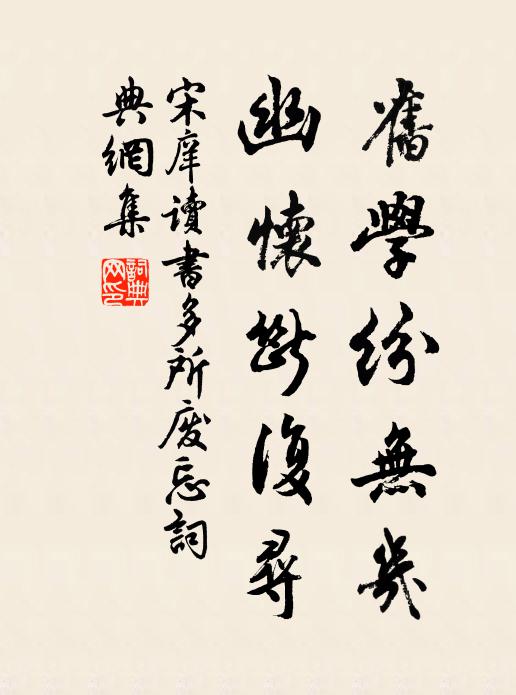 舊學紛無幾
幽懷斷復尋
宋庠讀書多所廢忘詞
典網集
詞典網印